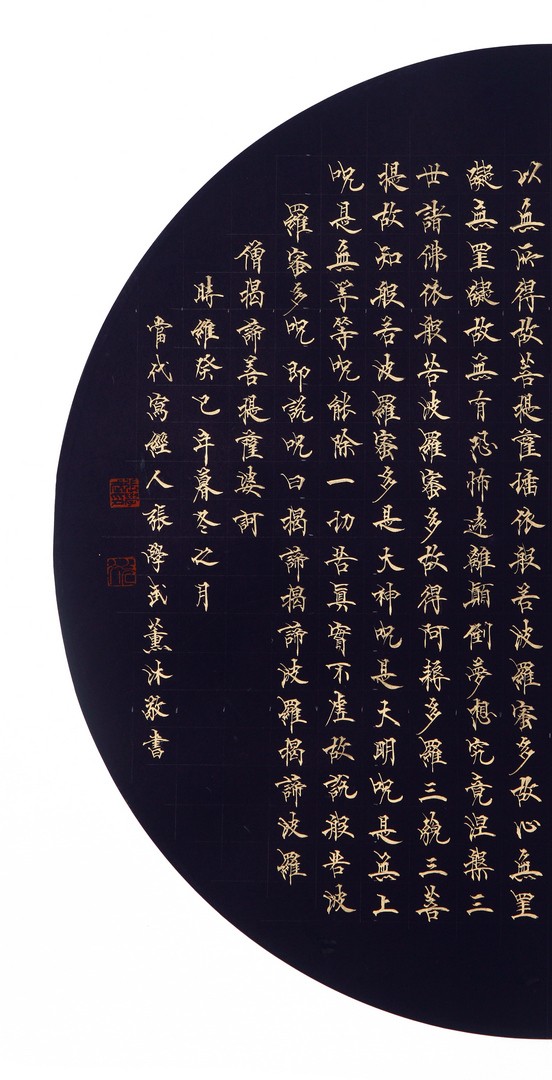 以無所得故菩提薩埵依般若波羅蜜多故心無罣
礙無罣礙故無有恐怖遠離顛倒夢想究竟涅槃三
世諸佛依般若波羅蜜多故得阿耨多羅三藐三菩
提故知般若波羅蜜多是大神呪是大明呪是無上
呪是無等等呪能除一切苦真實不虛故說般若波
羅蜜多呪即說呪曰揭諦揭諦波羅揭諦波羅
僧揭諦菩提薩婆訶
時維癸巳年暮冬之月
當代寫經人張學武薰沐敬書